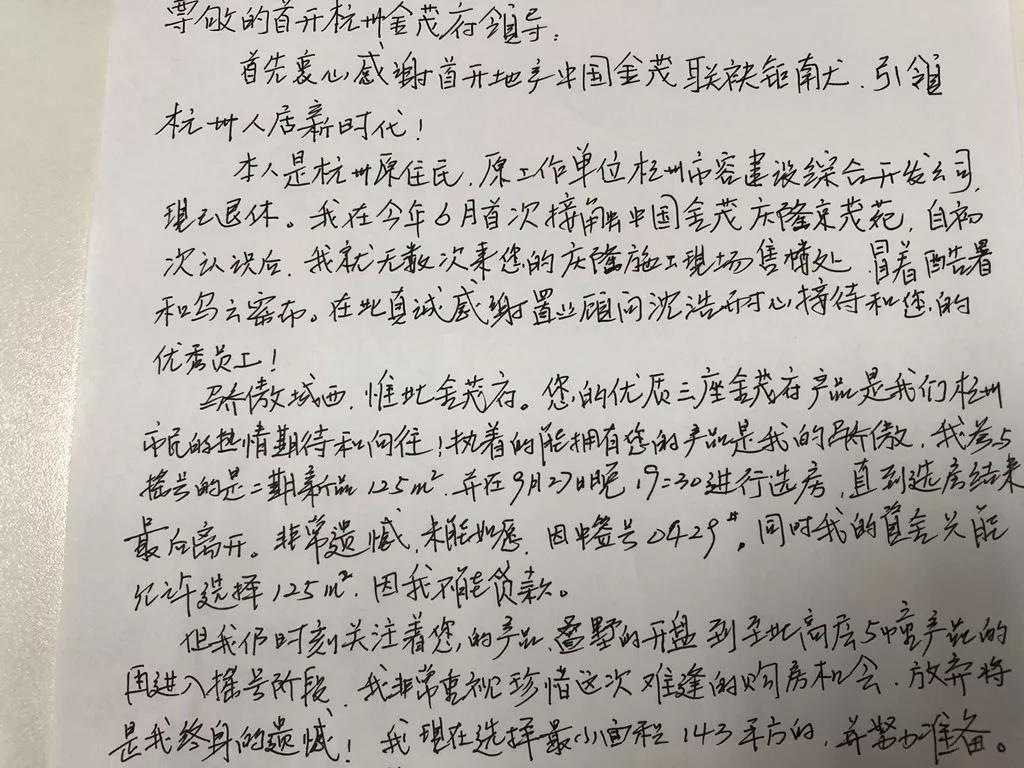 尊敬的首开杭州金茂府领导:
首先衷心感谢首开地产中国金茂联袂钜南犬.引领
杭州人居新时代!
本人是杭州原住民,原工作单位杭州市容建设综合开发公司,
现已退休。我在今年6月首次接触中国金茂庆隆京茂苑,自初
次认识后,我就无数次来您的庆隆施工现场售楼处 冒着酷暑
和乌云密布。在此真诚感谢置业顾问沈浩耐心接待和您的
优秀员工!
骄傲城西,惟此金茂府。您的优质三座金茂府产品是我们杭州
市民的热情期待和向往!执着的能拥有您的产品是我的骄傲,我参与
摇号的是二期新品125m²并在9月27日晚19:30进行选房,直到选房结束
最后离开。非常遗憾,未能如愿,因中签号0429#。同时我的资金只能
允许选择125m²,因我不能贷款。
但我仍时刻关注着您的产品,叠墅的开盘到至此高层5幢产品的
再进入摇号阶段,我非常重视珍惜这次难逢的购房机会,放弃将
是我终身的遗憾!我现在选择最小面积143平方的,并努力准备。